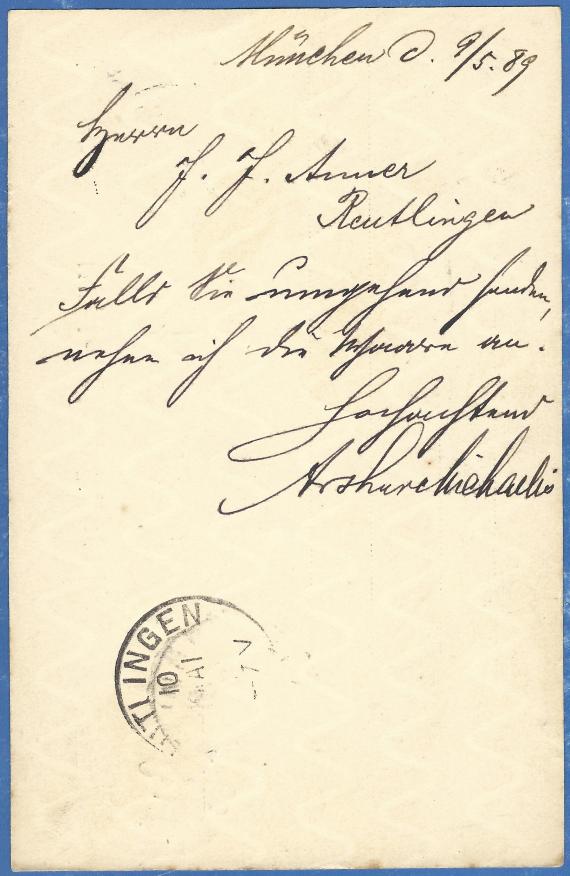 München d. 9/5. 89
Herrn
J. J. Anner
Reutlingen
Falls Sie umgehend senden,
nehme ich die Waare an.
Hochachtend
Arthur Michaelis
TLINGEN
10
MAI